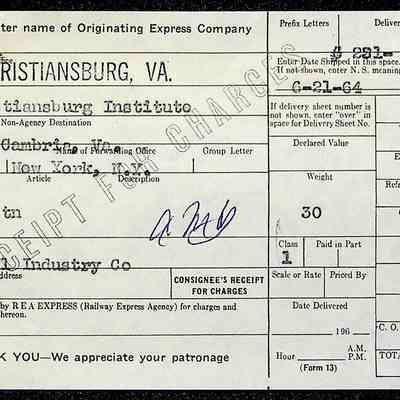 ter name of Originating Express Company
Prefix Letters Deliver
G 231-
Enter Date Shipped in this space.
If not shown, enter N. S. meaning
RISTIANSBURG, VA.
6-21-64
tiansburg Institute
Non-Agency Destination
If delivery sheet number is
not shown, enter "over" in
space for Delivery Sheet No.
Cambria, Va.
Name of Forwarding Office Group Letter
Declared Value
New York, N.Y.
Article Description
Weight
tn
30
RECEIPT FOR CHARGES
Class Paid in Part
1
l Industry Co
ddress
CONSIGNEE'S RECEIPT
FOR CHARGES
Scale or Rate Priced By
by R E A EXPRESS (Railway Express Agency) for charges and
hereon.
Date Delivered
196
C. O.
K YOU—We appreciate your patronage
Hour A.M.
P.M.
(Form 13)
TOTA